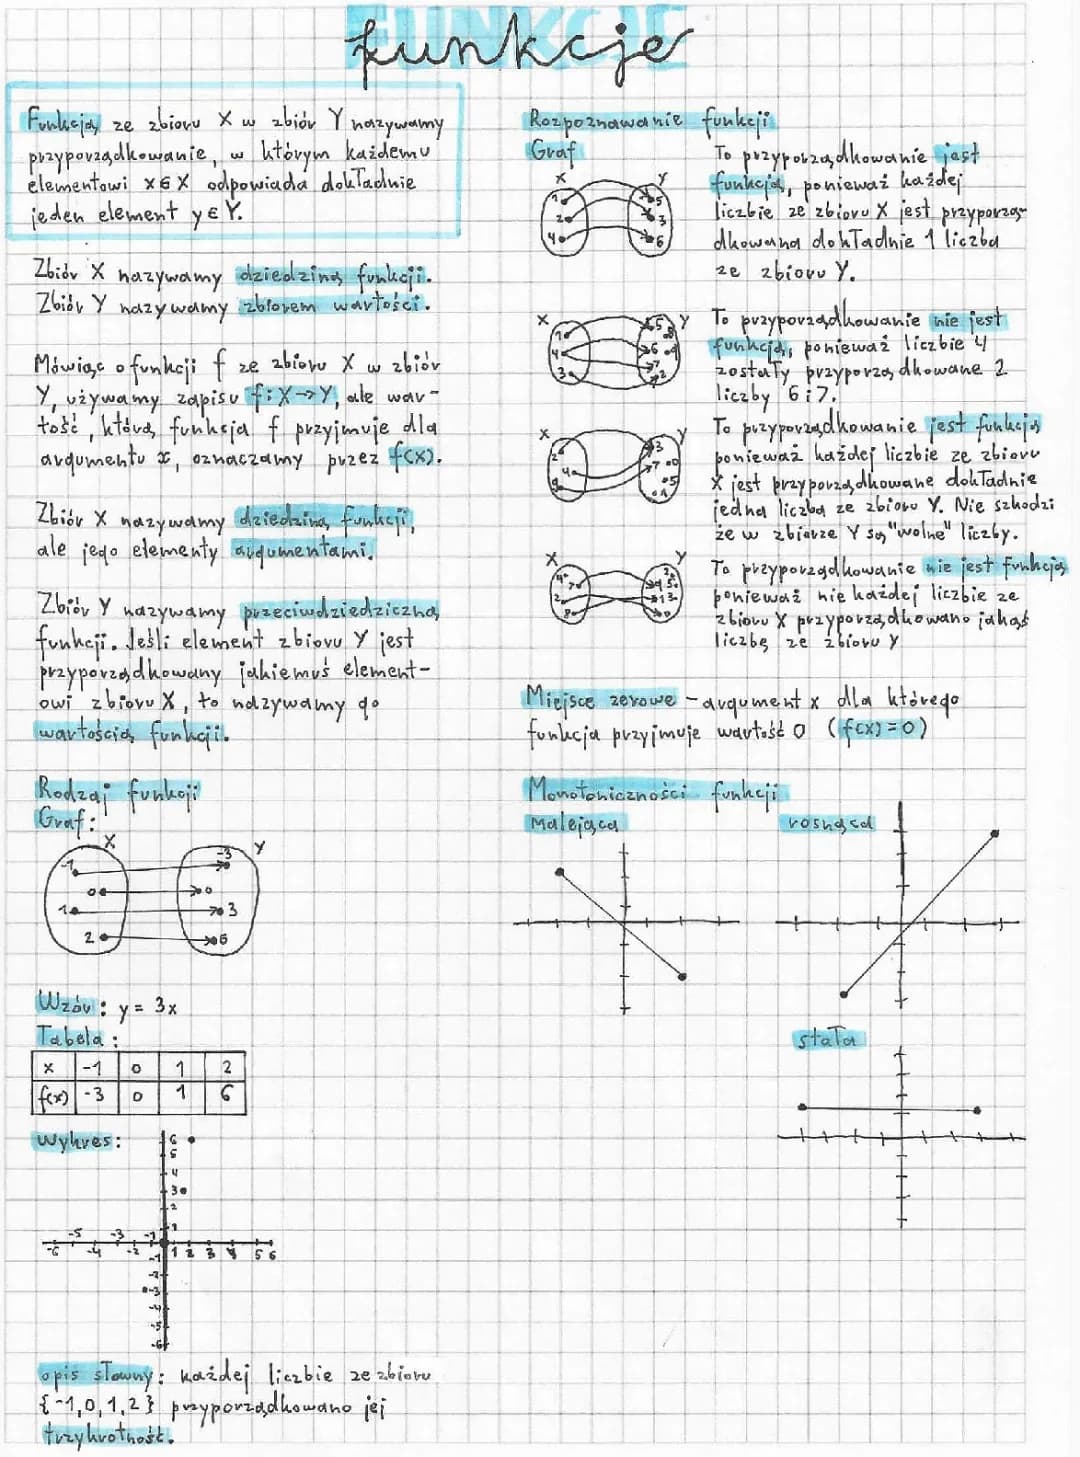 FUNKCJE
funkcje
Funkcją ze zbioru X w zbiór Y nazywamy
przyporządkowanie, w którym każdemu
elementowi x∈X odpowiada dokładnie
jeden element y∈Y.
Zbiór X nazywamy dziedziną funkcji.
Zbiór Y nazywamy zbiorem wartości.
Mówiąc o funkcji f ze zbioru X w zbiór
Y, używamy zapisu f:X→Y, ale war-
tość, którą funkcja f przyjmuje dla
argumentu x, oznaczamy przez f(x).
Zbiór X nazywamy dziedziną funkcji,
ale jego elementy argumentami.
Zbiór Y nazywamy przeciwdziedziczną
funkcji. Jeśli element zbioru Y jest
przyporządkowany jakiemuś element-
owi zbioru X, to nazywamy go
wartością funkcji.
Rodzaj funkcji
Graf:
X Y
-1 -3
0 0
1 3
2 6
Wzór: y = 3x
Tabela:
x -1 0 1 2
f(x) -3 0 1 6
Wykres:
6
5
4
3
2
1
-6 -5 -4 -3 -2 -1 1 2 3 4 5 6
-1
-2
-3
-4
-5
-6
opis słowny: każdej liczbie ze zbioru
{-1,0,1,2} przyporządkowano jej
trzykrotność.
Rozpoznawanie funkcji
Graf
X Y
1 5
2 3
4 6
To przyporządkowanie jest
funkcją, ponieważ każdej
liczbie ze zbioru X jest przyporzą-
dkowana dokładnie 1 liczba
ze zbioru Y.
X Y
1 5 8
4 6 9
3 7
2
To przyporządkowanie nie jest
funkcją, ponieważ liczbie 4
zostały przyporządkowane 2
liczby 6 i 7.
X Y
2 3
4 7 0
9 5
1
To przyporządkowanie jest funkcją
ponieważ każdej liczbie ze zbioru
X jest przyporządkowane dokładnie
jedna liczba ze zbioru Y. Nie szkodzi
że w zbiorze Y są "wolne" liczby.
X Y
4 7
2
8
To przyporządkowanie nie jest funkcją
ponieważ nie każdej liczbie ze
zbioru X przyporządkowano jakąś
liczbę ze zbioru Y
Miejsce zerowe - argument x dla którego
funkcja przyjmuje wartość 0 (f(x)=0)
Monotoniczności funkcji
malejąca rosnąca
stała